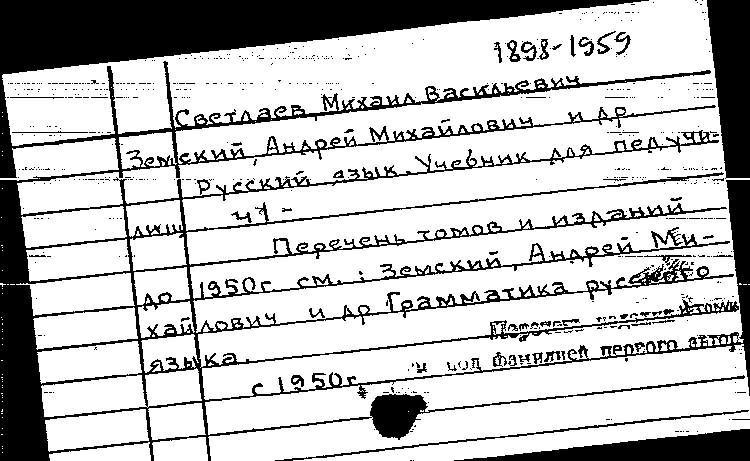 1898-1959
Светлаев, Михаил Васильевич
Земский, Андрей Михайлович и др.
Русский язык. Учебник для пед.учи-
лищ. ч1-
Перечень томов и изданий
до 1950г см.: Земский, Андрей Ми-
хайлович и др Грамматика русского
языка.
с 1950г. и под фамилией первого автор